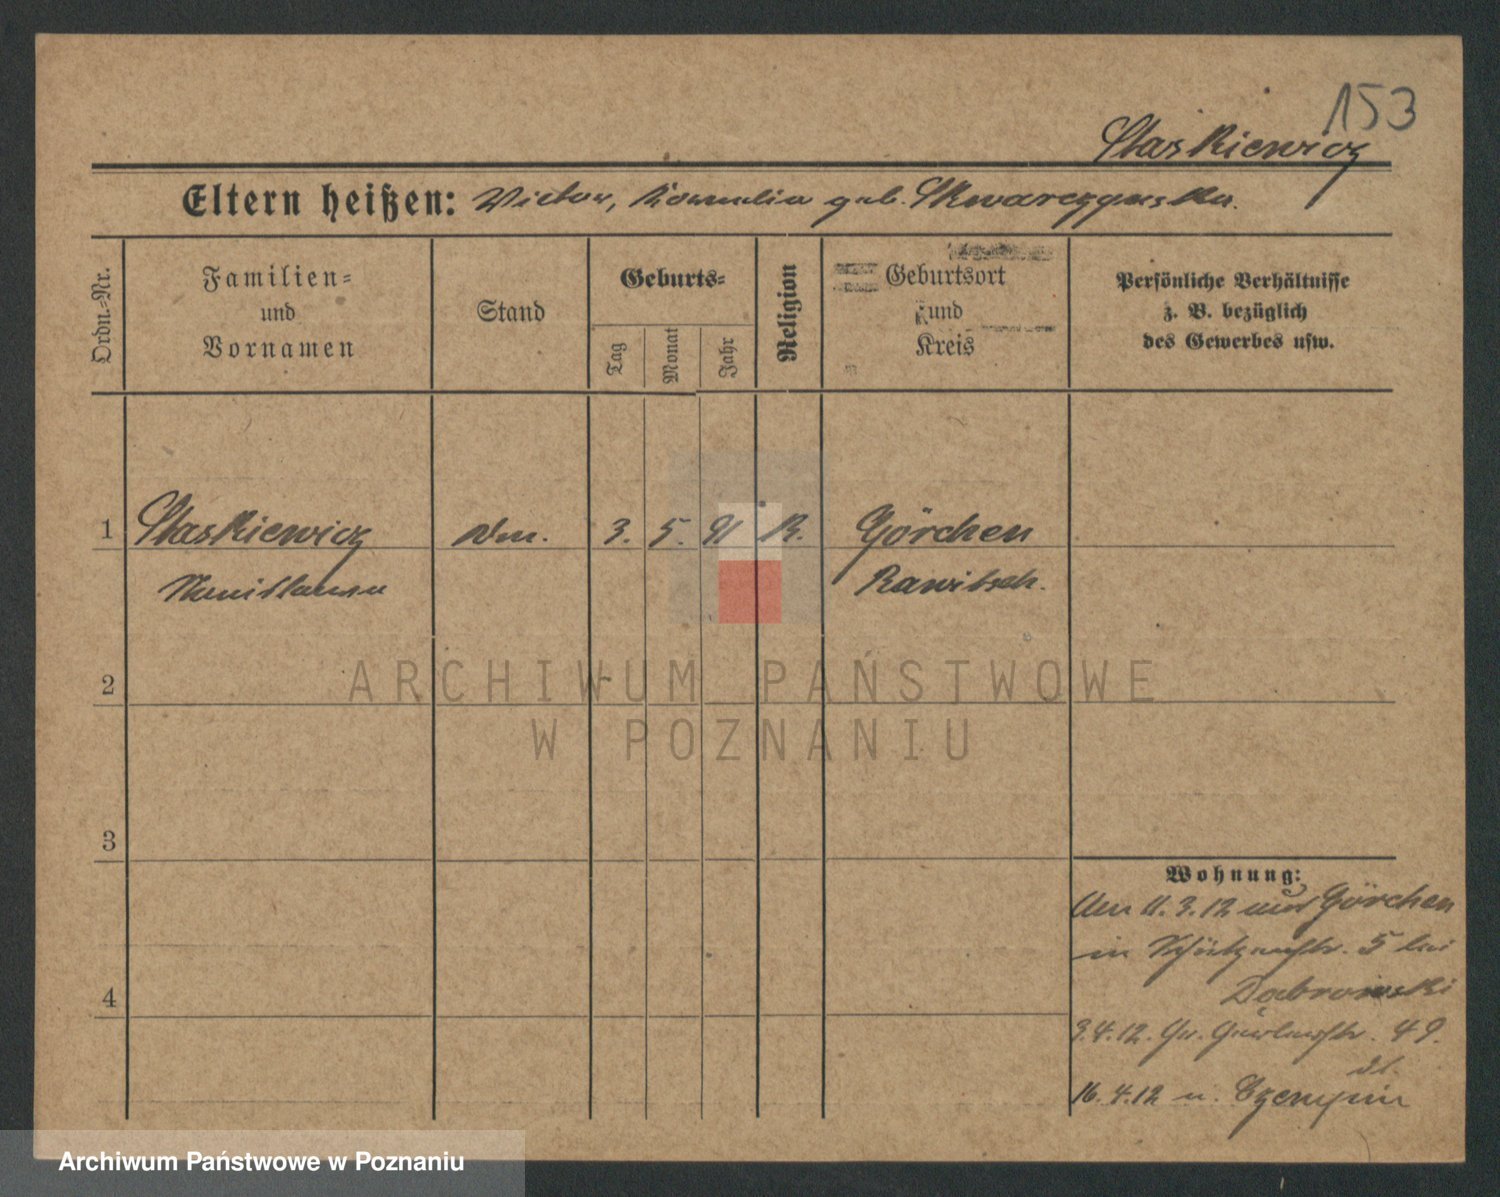 153
Staskiewicz
Eltern heißen: Victor, Kornelia geb. Skwarczynska.
Ordn.-Nr.
Familien=
und
Vornamen
Stand
Geburts=
Tag
Monat
Jahr
Religion
Geburtsort
und
Kreis
Persönliche Verhältnisse
z. B. bezüglich
des Gewerbes usw.
1 Staskiewicz 3. 5. 91 K. Görchen
Stanislawa Rawitsch.
2
ARCHIWUM PAŃSTWOWE
W POZNANIU
3
4
Wohnung:
Am 11.3.12 aus Görchen
in Schützenstr. 5 bei
Dabrowski
3.4.12. Gr. Gerberstr. 49.
16.4.12 n. Czempin
Archiwum Państwowe w Poznaniu